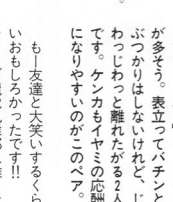 が多そう。表立ってバチンと
ぶつかりはしないけれど、じ
わっじわっと離れたがる2人
です。ケンカもイヤミの応酬
になりやすいのがこのペア。
もー友達と大笑いするくら
いおもしろかったです!!